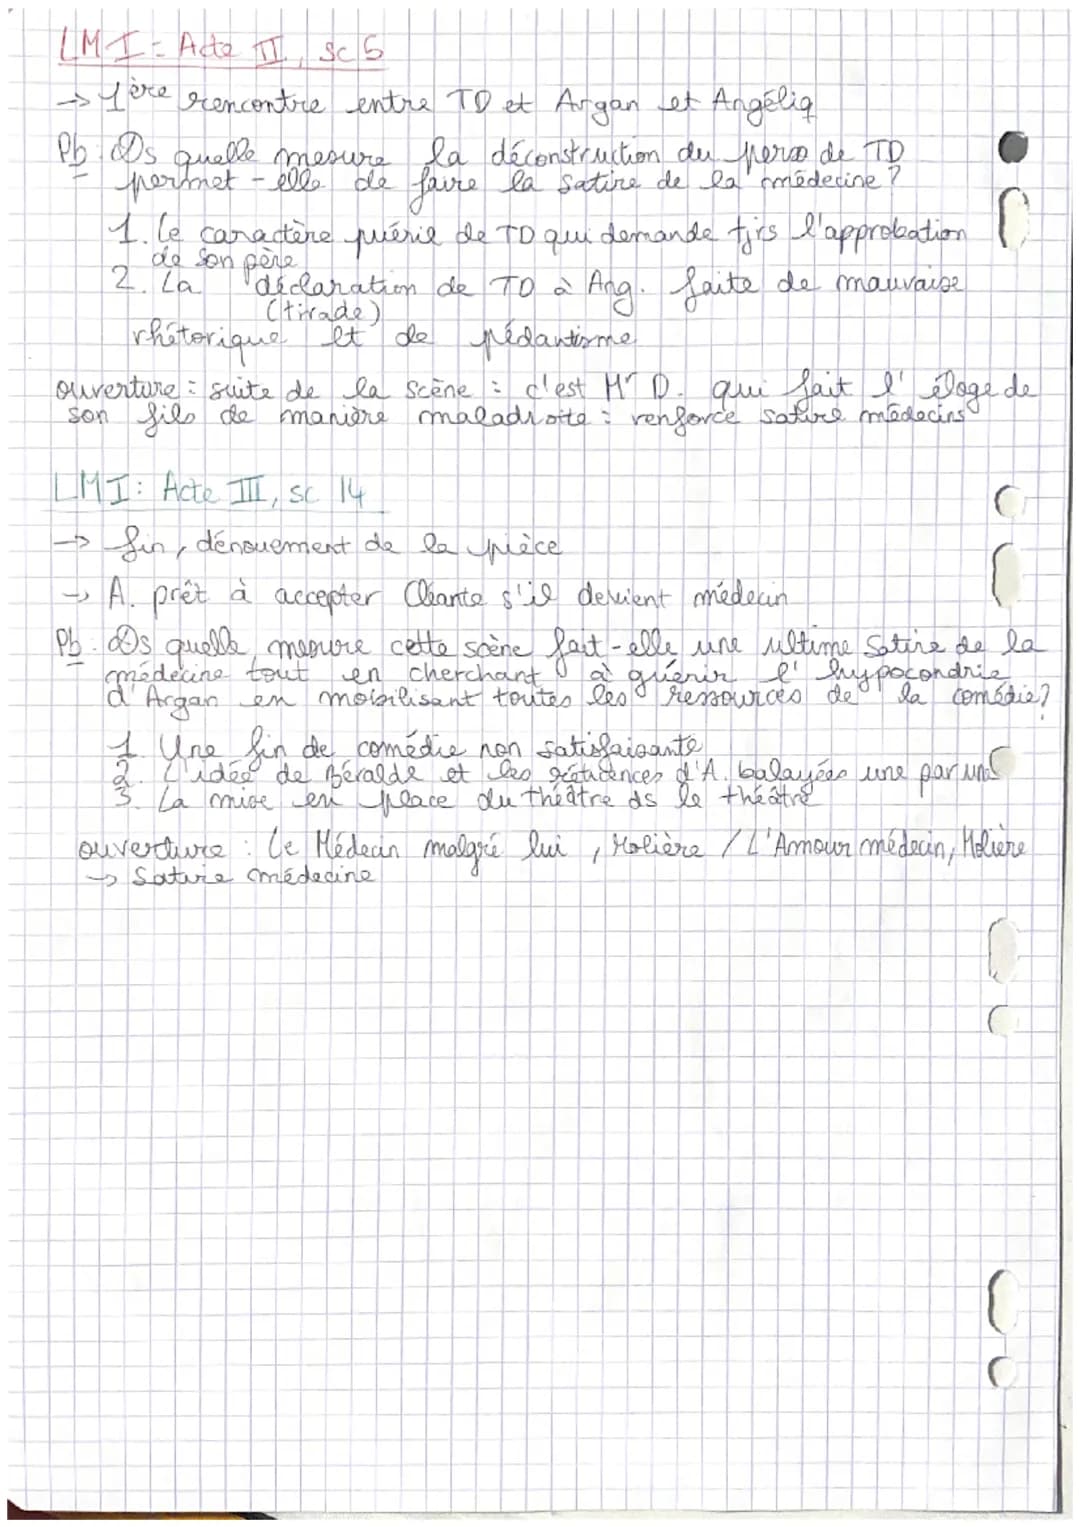 LMI = Acte II, sc 5
→ 1ère rencontre entre TD et Argan et Angéliq
Pb : Ds quelle mesure la déconstruction du perso de TD
permet-elle de faire la satire de la médecine ?
1. Le caractère puéril de TD qui demande tjrs l'approbation
de son père
2. La déclaration de TD à Ang. faite de mauvaise
(tirade)
rhétorique et de pédantisme
ouverture : suite de la scène : c'est Mr D. qui fait l'éloge de
son fils de manière maladroite : renforce satire médecins
LMI : Acte III, sc 14
→ fin, dénouement de la pièce
→ A. prêt à accepter Cléante s'il devient médecin
Pb : Ds quelle mesure cette scène fait-elle une ultime satire de la
médecine tout en cherchant à guérir l'hypocondrie
d'Argan en mobilisant toutes les ressources de la comédie ?
1. Une fin de comédie non satisfaisante
2. L'idée de Béralde et les réticences d'A. balayées une par une
3. La mise en place du théâtre ds le théâtre
ouverture : Le Médecin malgré lui, Molière / L'Amour médecin, Molière
→ Satire médecine